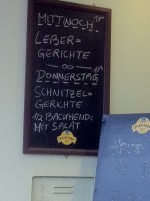 MITTWOCH
LEBER=
GERICHTE
DONNERSTAG
SCHNITZEL=
GERICHTE
1/2 BACKHENDL
MIT SALAT